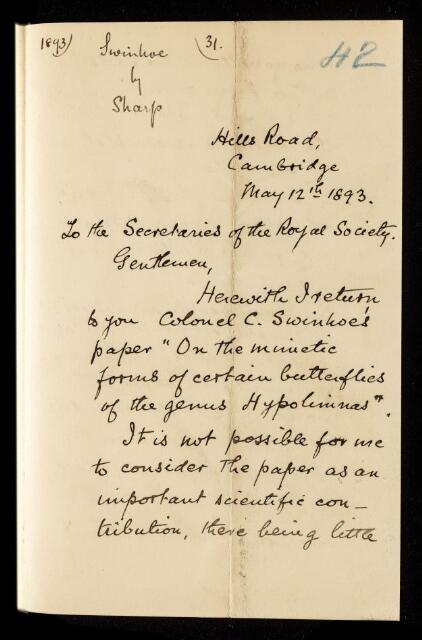 1893)
(31.
42
Swinhoe
by
Sharp
Hills Road,
Cambridge
May 12th 1893.
To the Secretaries of the Royal Society.
Gentlemen,
Herewith I return
to you Colonel C. Swinhoe's
paper "On the mimetic
forms of certain butterflies
of the genus Hypolimnas".
It is not possible for me
to consider the paper as an
important scientific con-
tribution, there being little